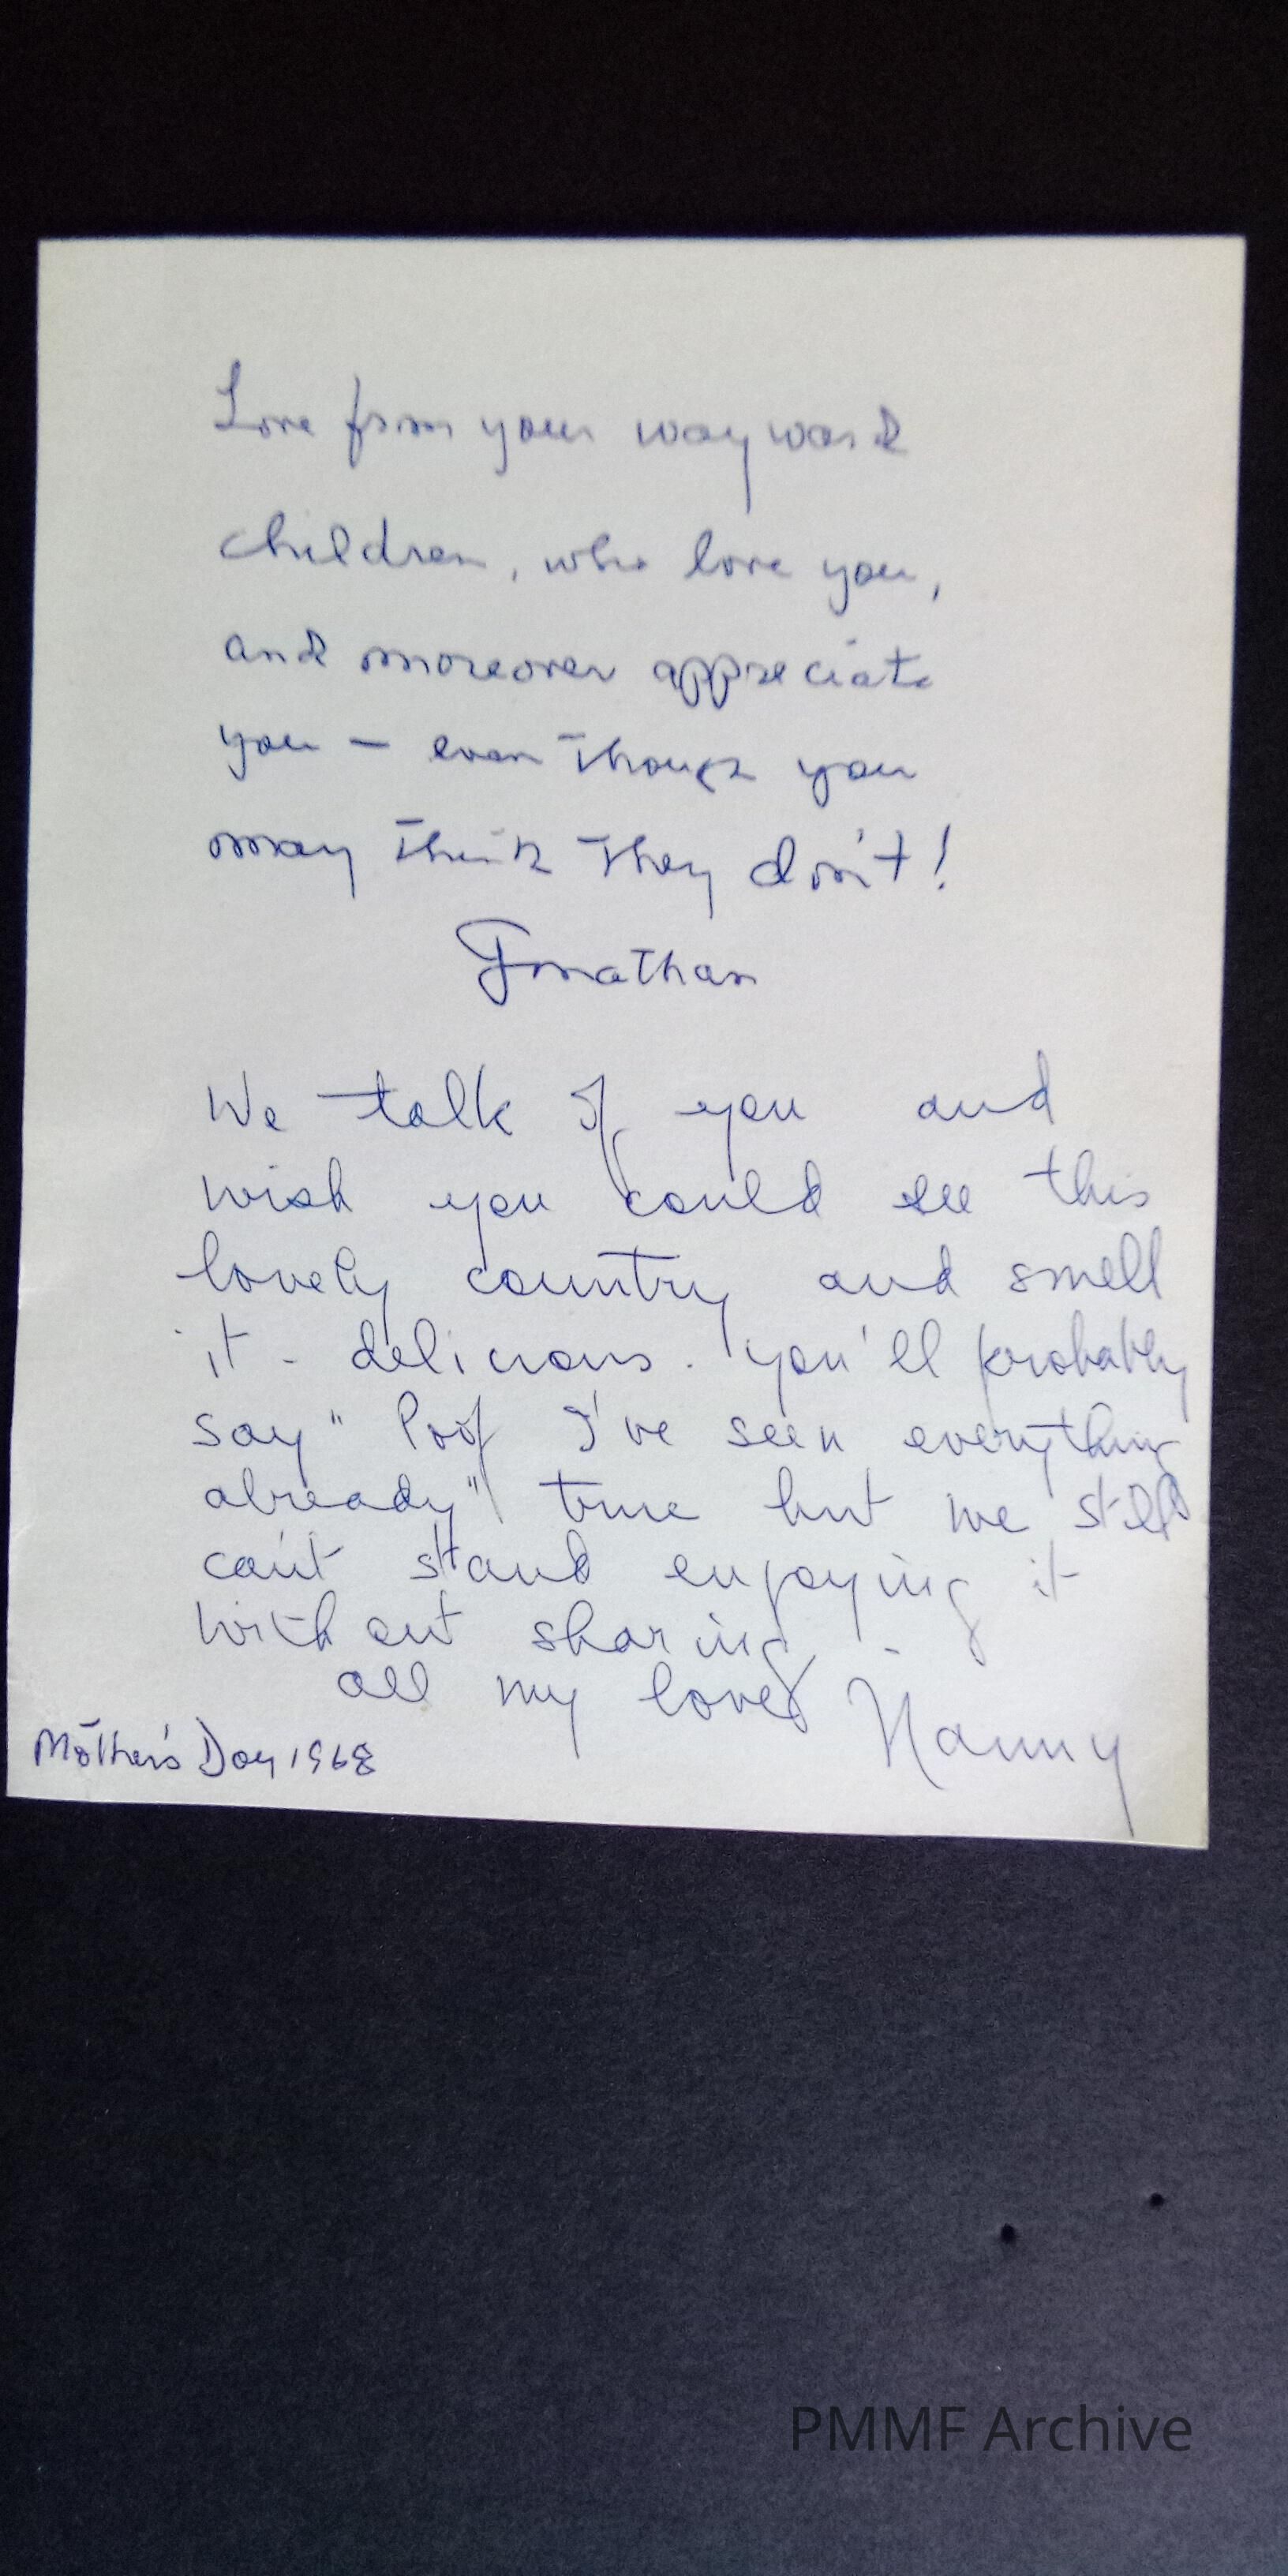 Love from your wayward
children, who love you,
and moreover appreciate
you — even though you
may think they don't!
Jonathan
We talk of you and
wish you could see this
lovely country and smell
it - delicious. You'll probably
say "Poof I've seen everything
already" true but we still
can't stand enjoying it
without sharing -
all my love
Mother's Day 1968
PMMF Archive